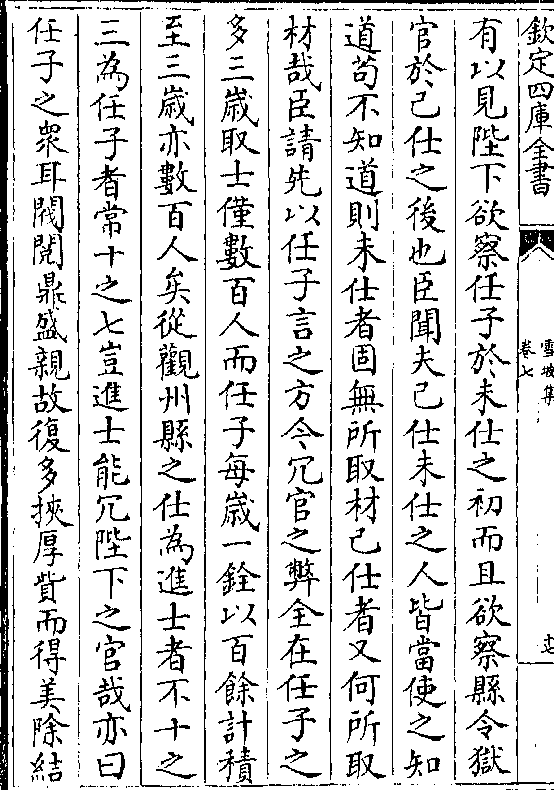 欽定四庫全書
雪坡集
卷七
有以見陛下欲察任子於未仕之初而且欲察縣令獄
官於已仕之後也臣聞夫已仕未仕之人皆當使之知
道茍不知道則未仕者固無所取材已仕者又何所取
材哉臣請先以任子言之方今冗官之弊全在任子之
多三歲取士僅數百人而任子每歲一銓以百餘計積
至三歲亦數百人矣從觀州縣之仕為進士者不十之
三為任子者常十之七豈進士能冗陛下之官哉亦曰
任子之衆耳閥閲鼎盛親故復多挾厚貲而得美除結